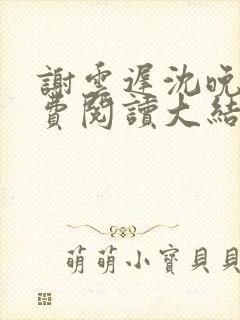 謝雲遲沈晚
費閱讀大結
萌萌小寶貝貝